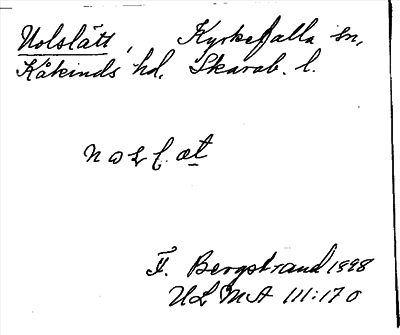 Uolslätt, Kyrkefalla sn,
Kåkinds hd, Skarab. l.
F. Bergstrand 1898
ULMA 111:170